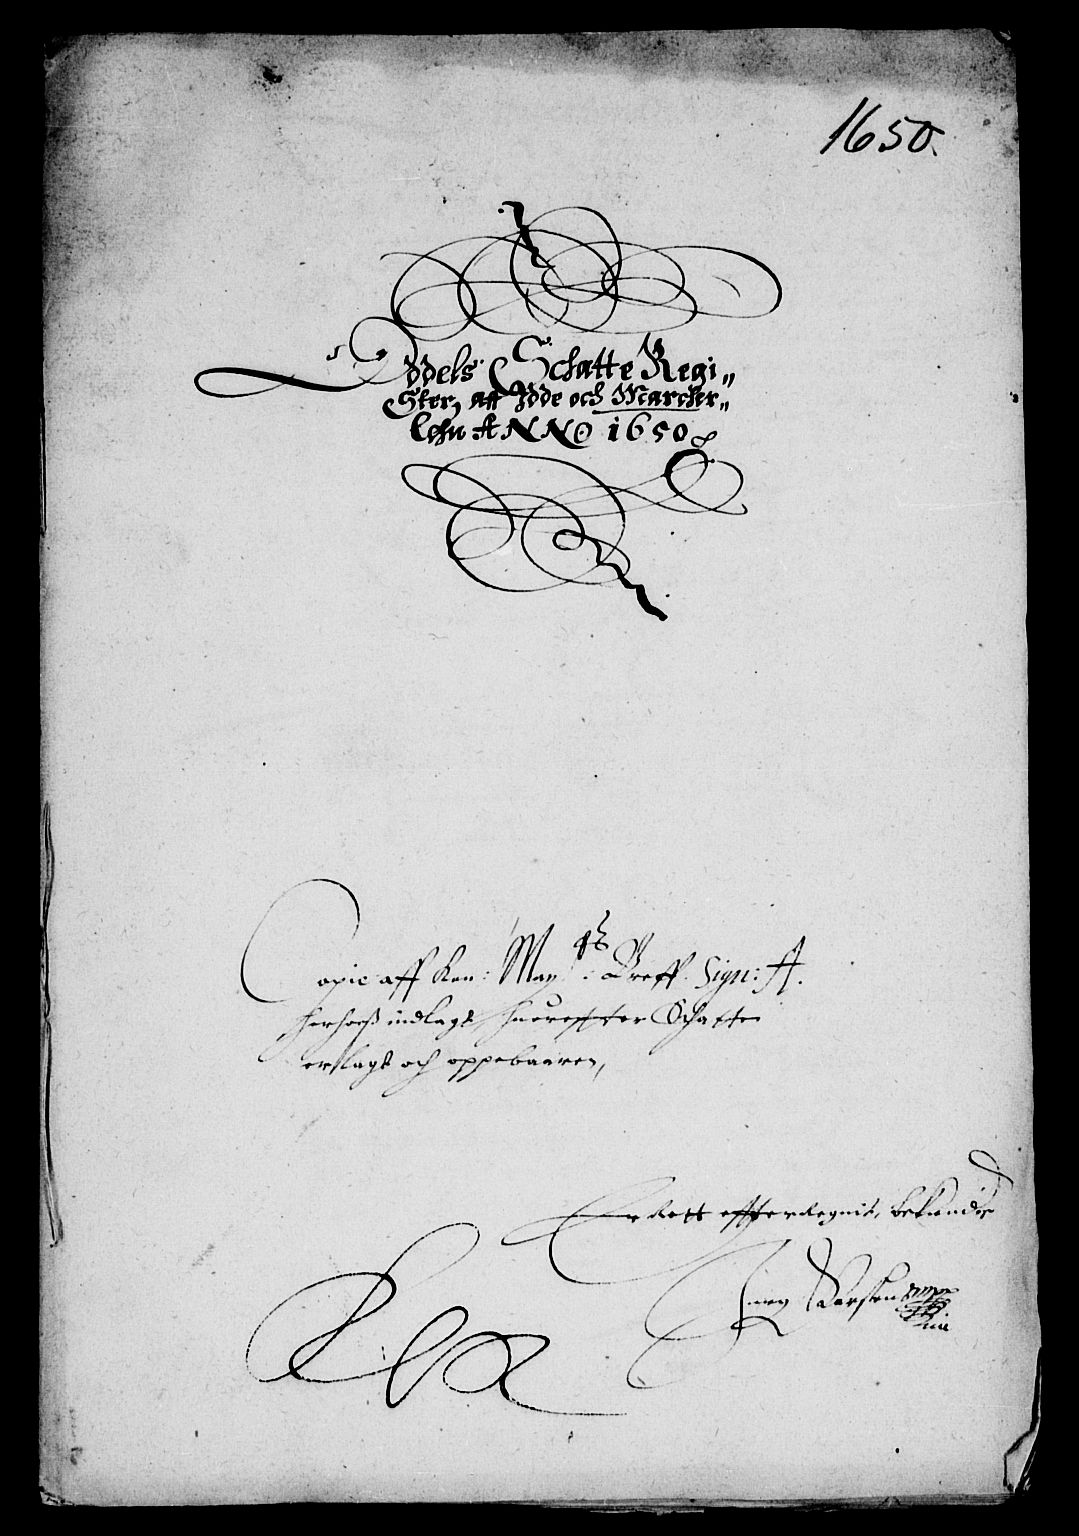 1650.
Oddels Schatte Regi„
Ster, aff Idde och Marcker„
Lehn ANNO 1650
Copie aff Kon: May: tz Breff Sign: A.
herhoes indlagt huoreffter Schatten
erslagt och oppebaaren,
Er Rett effter Regnit, bekiender